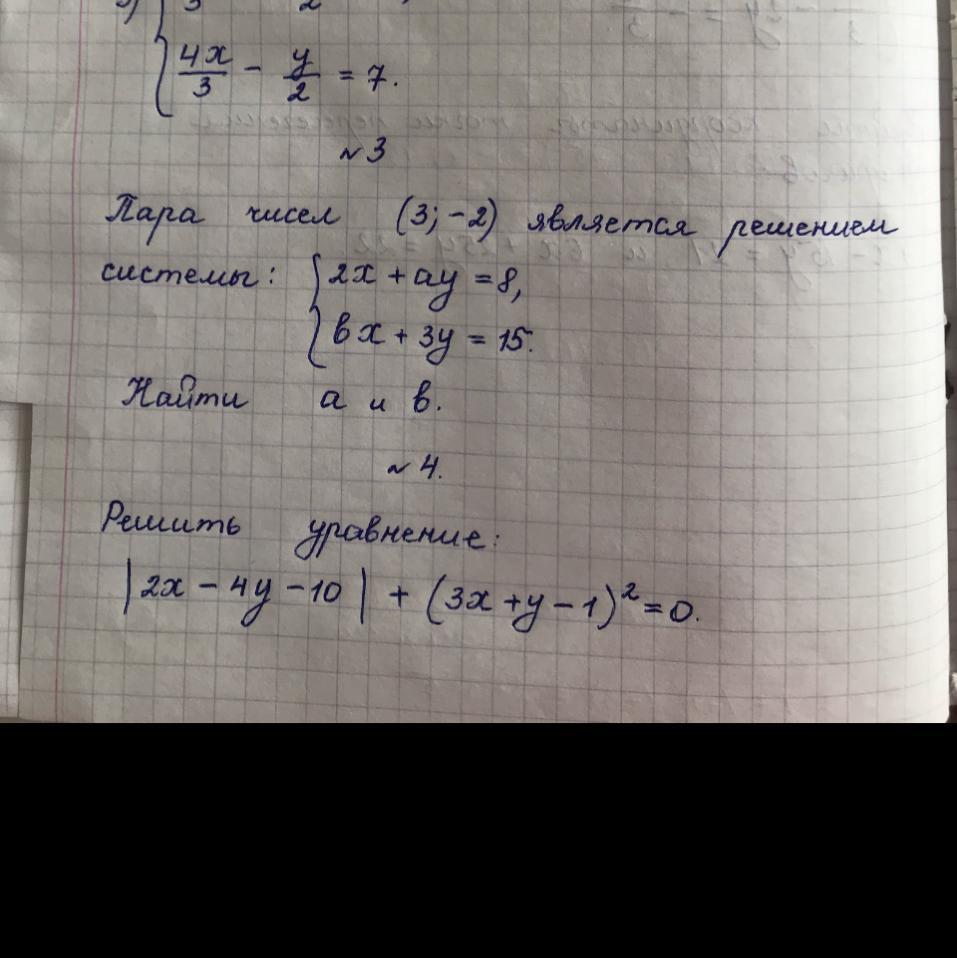 4x/3 - y/2 = 7.
~3
Пара чисел (3; -2) является решением
системы: { 2x + ay = 8,
bx + 3y = 15.
Найти a и b.
~4.
Решить уравнение:
|2x - 4y - 10| + (3x + y - 1)² = 0.